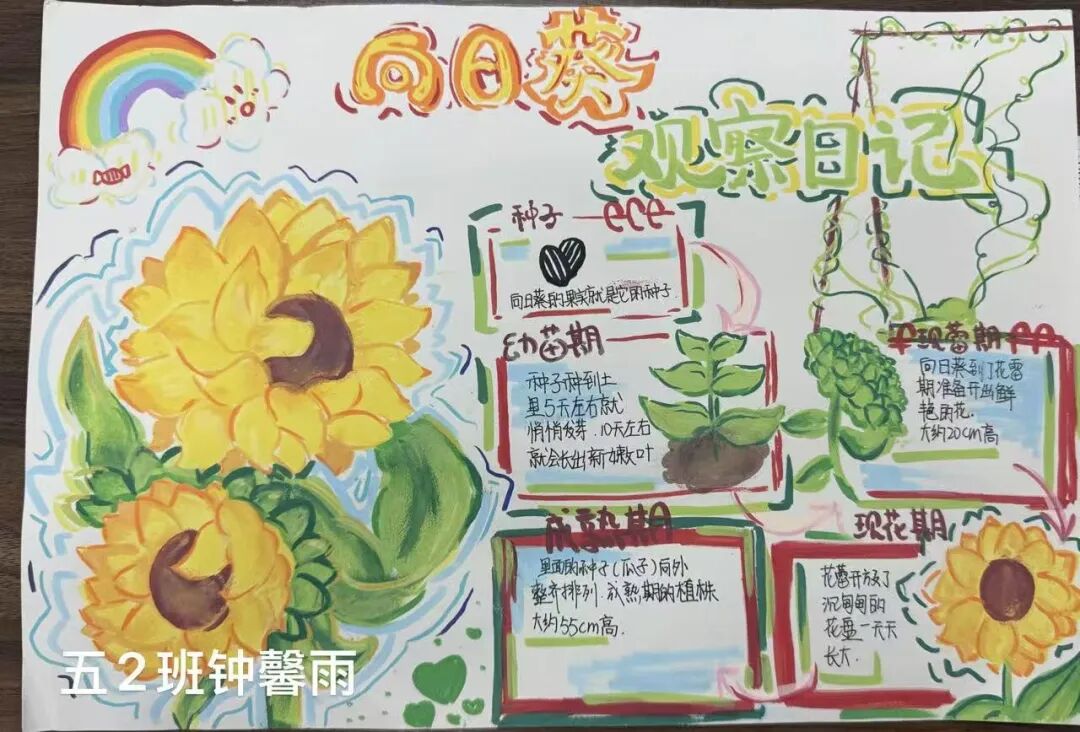 向日葵
观察日记
种子
向日葵的果实就是它的种子.
幼苗期
种子种到土
里5天左右就
悄悄发芽.10天左右
就会长出新嫩叶
现蕾期
向日葵到了花蕾
期准备开出鲜
艳的花.
大约20cm高
现花期
花蕾开放了
沉甸甸的
花盘一天天
长大.
成熟期
里面的种子(瓜子)向外
整齐排列.成熟期的植株
大约55cm高.
五2班钟馨雨